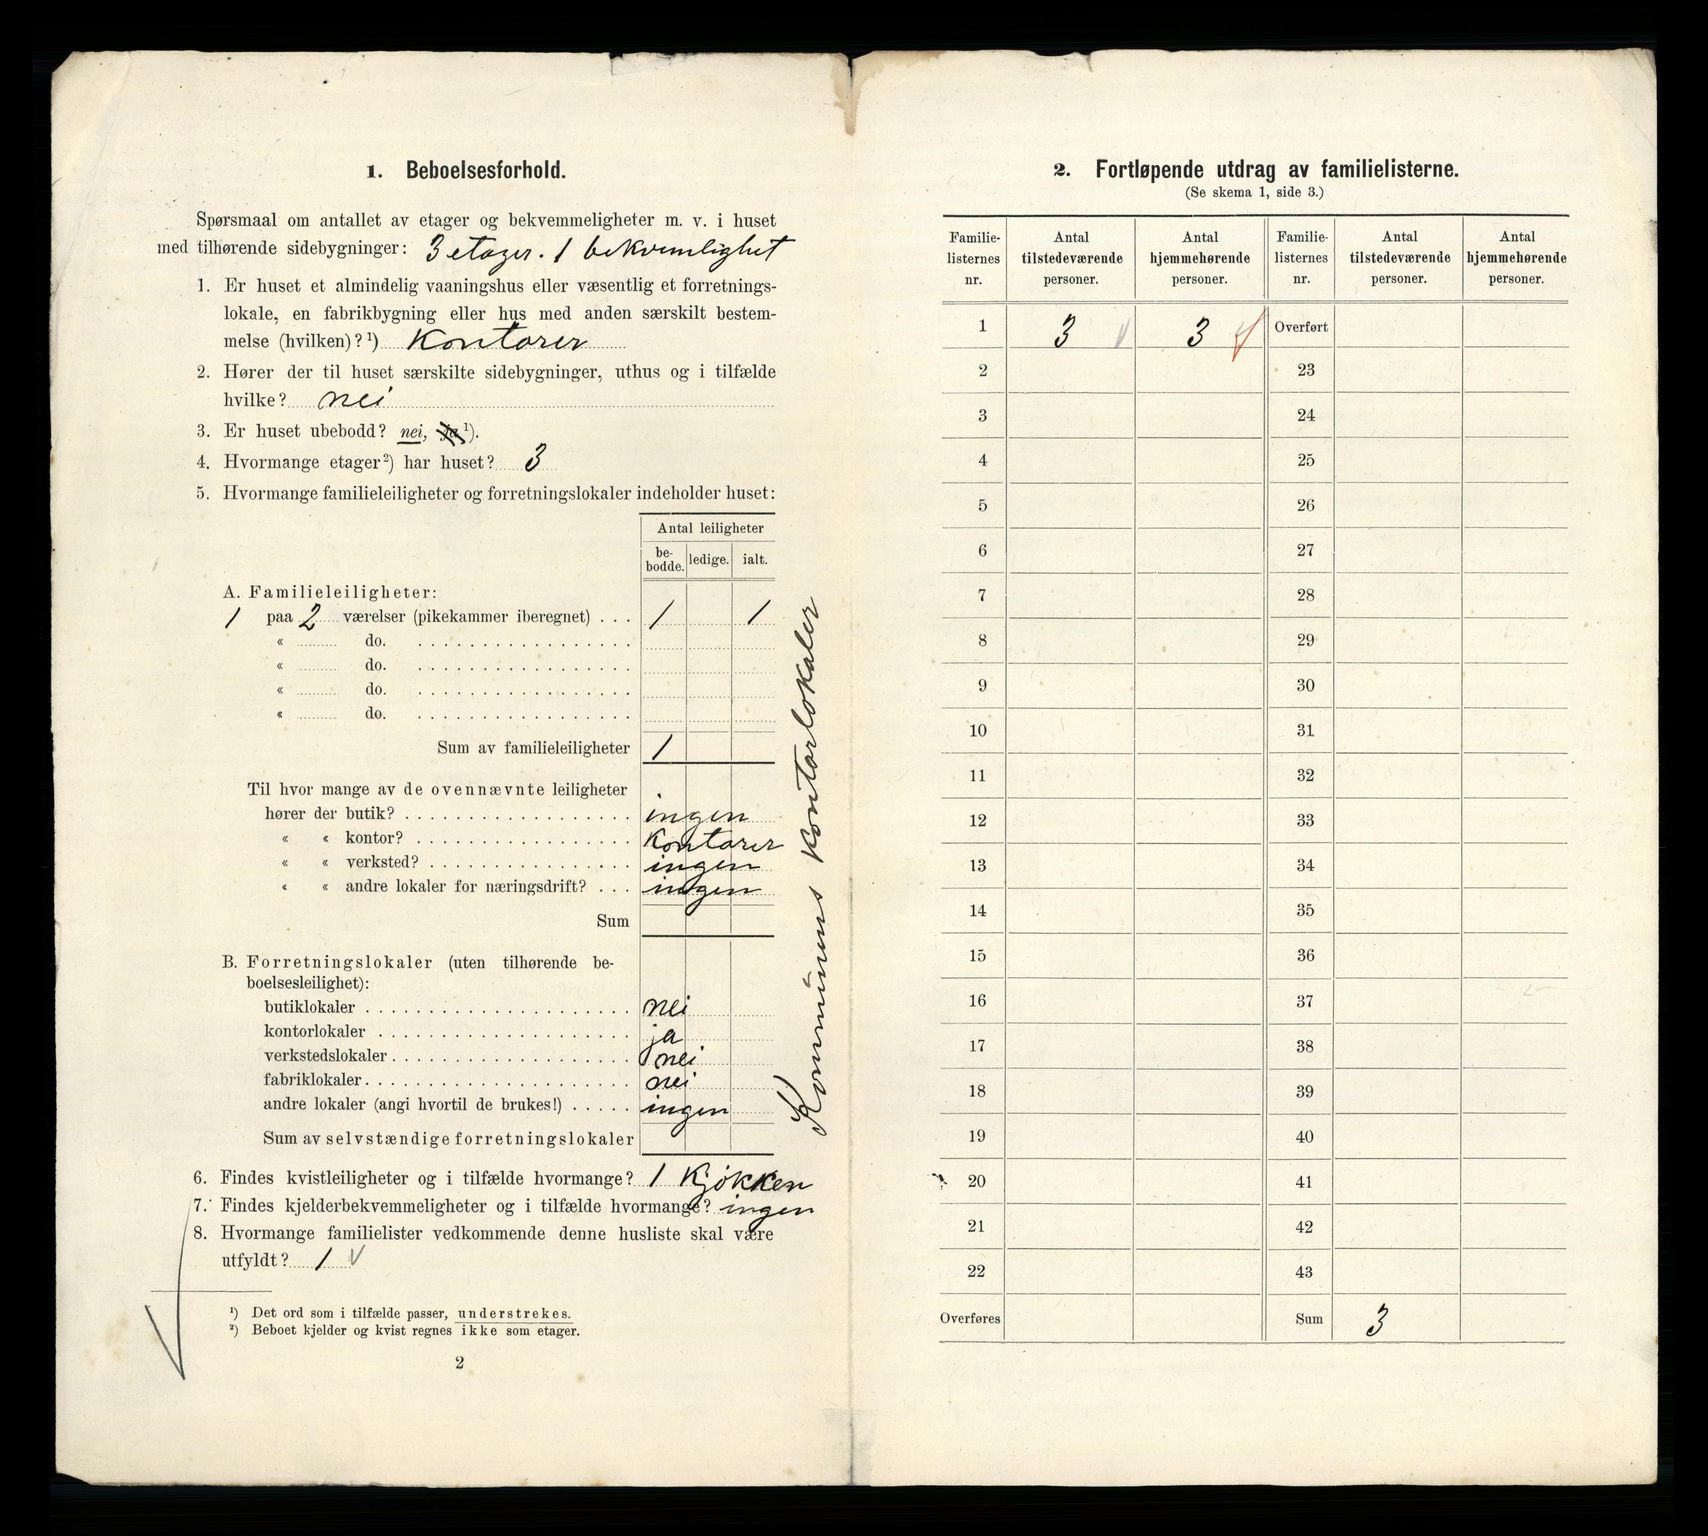 1. Beboelsesforhold.
Spørsmaal om antallet av etager og bekvemmeligheter m. v. i huset
med tilhørende sidebygninger: 3 etager. 1 bekvemlighet
1. Er huset et almindelig vaaningshus eller væsentlig et forretnings-
lokale, en fabrikbygning eller hus med anden særskilt bestem-
melse (hvilken)?¹) Kontorer
2. Hører der til huset særskilte sidebygninger, uthus og i tilfælde
hvilke? nei
3. Er huset ubebodd? nei, ja¹).
4. Hvormange etager²) har huset? 3
5. Hvormange familieleiligheter og forretningslokaler indeholder huset:
Antal leiligheter
be-
bodde. ledige. ialt.
A. Familieleiligheter:
1 paa 2 værelser (pikekammer iberegnet) . . . 1 1
« do.
« do.
« do.
« do.
Sum av familieleiligheter 1
Til hvor mange av de ovennævnte leiligheter
hører der butik? ingen
« « kontor? Kontorer
« « verksted? ingen
« « andre lokaler for næringsdrift? . . . ingen
Sum
B. Forretningslokaler (uten tilhørende be-
boelsesleilighet):
butiklokaler nei
kontorlokaler ja
verkstedslokaler nei
fabriklokaler nei
andre lokaler (angi hvortil de brukes!) ingen
Sum av selvstændige forretningslokaler
Kommunens Kontorlokaler
6. Findes kvistleiligheter og i tilfælde hvormange? 1 Kjøkken
7. Findes kjelderbekvemmeligheter og i tilfælde hvormange? ingen
8. Hvormange familielister vedkommende denne husliste skal være
utfyldt? 1
¹) Det ord som i tilfælde passer, understrekes.
²) Beboet kjelder og kvist regnes ikke som etager.
2
2. Fortløpende utdrag av familielisterne.
(Se skema 1, side 3.)
Familie- Antal Antal Familie- Antal Antal
listernes tilstedeværende hjemmehørende listernes tilstedeværende hjemmehørende
nr. personer. personer. nr. personer. personer.
1 3 3 Overført
2 23
3 24
4 25
5 26
6 27
7 28
8 29
9 30
10 31
11 32
12 33
13 34
14 35
15 36
16 37
17 38
18 39
19 40
20 41
21 42
22 43
Overføres Sum 3